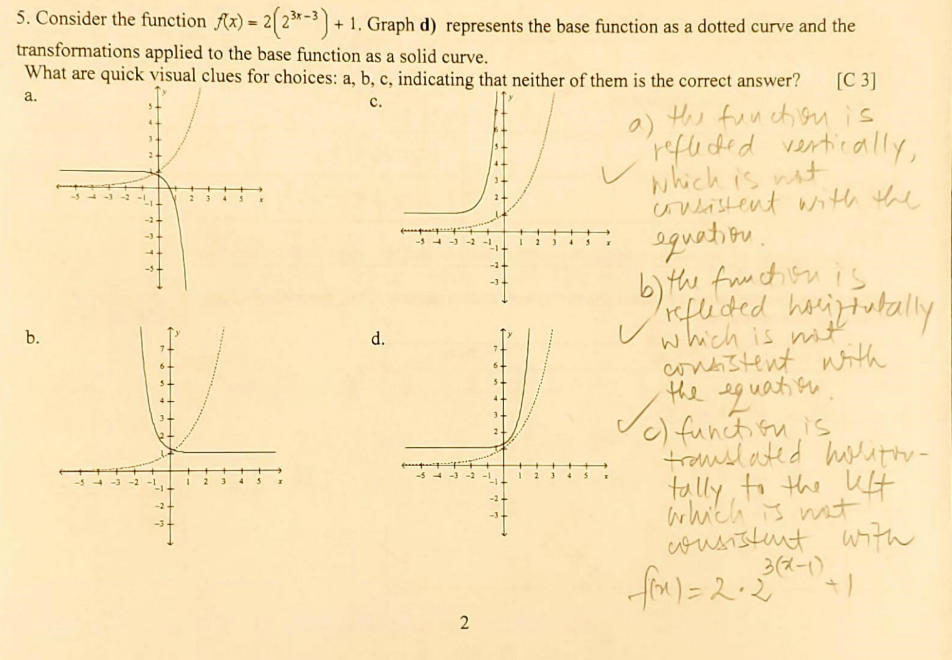 5. Consider the function f(x) = 2(2^{3x-3}) + 1. Graph d) represents the base function as a dotted curve and the
transformations applied to the base function as a solid curve.
What are quick visual clues for choices: a, b, c, indicating that neither of them is the correct answer? [C 3]
a.
c.
b.
d.
a) the function is
reflected vertically,
✓ which is not
consistent with the
equation.
b) the function is
reflected horizontally
✓ which is not
consistent with
the equation.
✓ c) function is
translated horizon-
tally to the left
which is not
consistent with
f(x) = 2·2^{3(x-1)} + 1
2